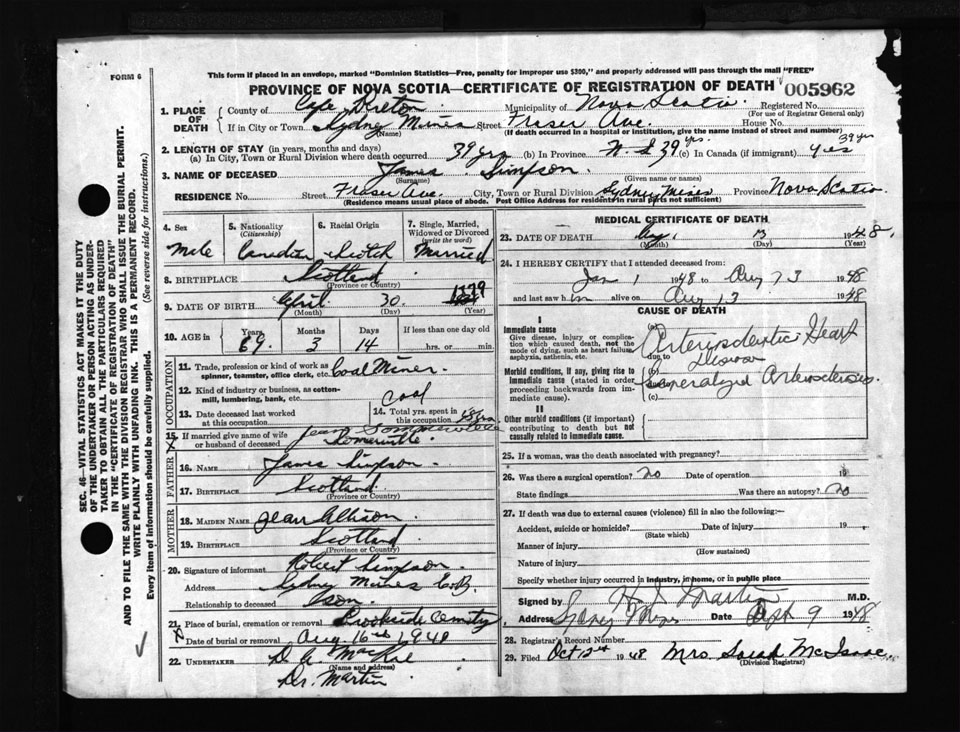 FORM 6
This form if placed in an envelope, marked "Dominion Statistics—Free, penalty for improper use $300," and properly addressed will pass through the mail "FREE"
PROVINCE OF NOVA SCOTIA—CERTIFICATE OF REGISTRATION OF DEATH 005962
1. PLACE OF DEATH County of Cape Breton Municipality of Nova Scotia Registered No.
(For use of Registrar General only)
If in City or Town Sydney Mines Street Fraser Ave. House No.
(Name) (If death occurred in a hospital or institution, give the name instead of street and number)
2. LENGTH OF STAY (in years, months and days)
(a) In City, Town or Rural Division where death occurred 39 yrs (b) In Province N.S 39 yrs. (c) In Canada (if immigrant) yes 39 yrs
3. NAME OF DECEASED James Simpson
(Surname) (Given name or names)
RESIDENCE No. Street Fraser Ave. City, Town or Rural Division Sydney Mines Province Nova Scotia
(Residence means usual place of abode. Post Office Address for residents in rural parts not sufficient)
4. Sex Male
5. Nationality (Citizenship) Canadian
6. Racial Origin Scotch
7. Single, Married, Widowed or Divorced (write the word) Married
8. BIRTHPLACE Scotland
(Province or Country)
9. DATE OF BIRTH April 30. 1879
(Month) (Day) (Year)
10. AGE in Years 69 Months 3 Days 14 If less than one day old hrs. or min.
OCCUPATION
11. Trade, profession or kind of work as spinner, teamster, office clerk, etc. Coal Miner
12. Kind of industry or business, as cotton-mill, lumbering, bank, etc. Coal
13. Date deceased last worked at this occupation
14. Total yrs. spent in this occupation
15. If married give name of wife or husband of deceased Jean Sommerville
Somerville
FATHER
16. Name James Simpson
17. Birthplace Scotland
(Province or Country)
MOTHER
18. Maiden Name Jean Allison
19. Birthplace Scotland
(Province or Country)
20. Signature of informant Robert Simpson
Address Sydney Mines C.B.
Relationship to deceased Son.
21. Place of burial, cremation or removal Brookside Cemetery
Date of burial or removal Aug. 16th 1948
22. UNDERTAKER D. A. MacRae
(Name and address)
Dr. Martin
MEDICAL CERTIFICATE OF DEATH
23. DATE OF DEATH Aug. 13 1948.
(Month) (Day) (Year)
24. I HEREBY CERTIFY that I attended deceased from:
Jan 1 1948 to Aug 13 1948
and last saw him alive on Aug 13 1948
CAUSE OF DEATH
I
Immediate cause
Give disease, injury or complication which caused death, not the mode of dying, such as heart failure, asphyxia, asthenia, etc.
(a) Arteriosclerotic Heart
due to Disease
Morbid conditions, if any, giving rise to immediate cause (stated in order proceeding backwards from immediate cause).
(b) Generalized Arteriosclerosis.
(c)
II
Other morbid conditions (if important) contributing to death but not causally related to immediate cause.
25. If a woman, was the death associated with pregnancy?
26. Was there a surgical operation? no Date of operation 19
State findings Was there an autopsy? no
27. If death was due to external causes (violence) fill in also the following:—
Accident, suicide or homicide? Date of injury 19
(State which)
Manner of injury
(How sustained)
Nature of injury
Specify whether injury occurred in industry, in home, or in public place
Signed by Martin M.D.
Address Sydney Mines Date Sept 9 1948
28. Registrar's Record Number
29. Filed Oct 12th 1948 Mrs Sarah McIsaac
(Division Registrar)
SEC. 46—VITAL STATISTICS ACT MAKES IT THE DUTY OF THE UNDERTAKER OR PERSON ACTING AS UNDERTAKER TO OBTAIN ALL THE PARTICULARS REQUIRED IN THE "CERTIFICATE OF REGISTRATION OF DEATH" AND TO FILE THE SAME WITH THE DIVISION REGISTRAR WHO SHALL ISSUE THE BURIAL PERMIT.
WRITE PLAINLY WITH UNFADING INK. THIS IS A PERMANENT RECORD.
Every item of information should be carefully supplied. (See reverse side for instructions.)